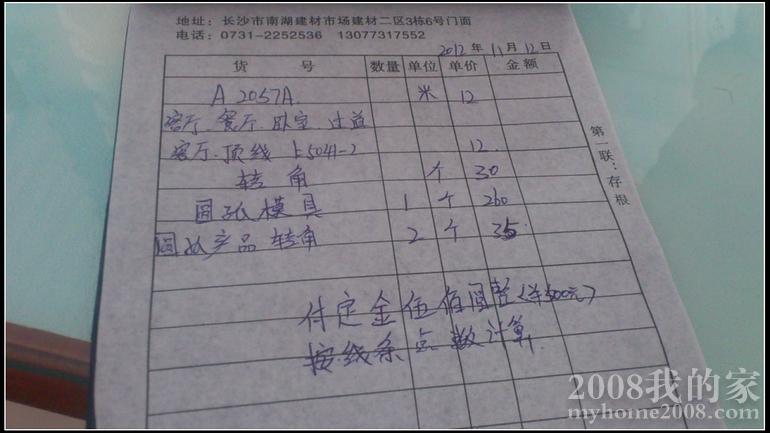 地址:长沙市南湖建材市场建材二区3栋6号门面
电话:0731-2252536 13077317552
2012年11月12日
货号 数量 单位 单价 金额
A 2057A 米 12
客厅、餐厅、卧室、过道
客厅、顶线 5041-2 12
转角 个 30
圆弧模具 1 个 260
圆弧产品转角 2 个 35
付定金伍佰圆整(¥500元)
按线条点数计算
第一联:存根
2008我的家
myhome2008.com